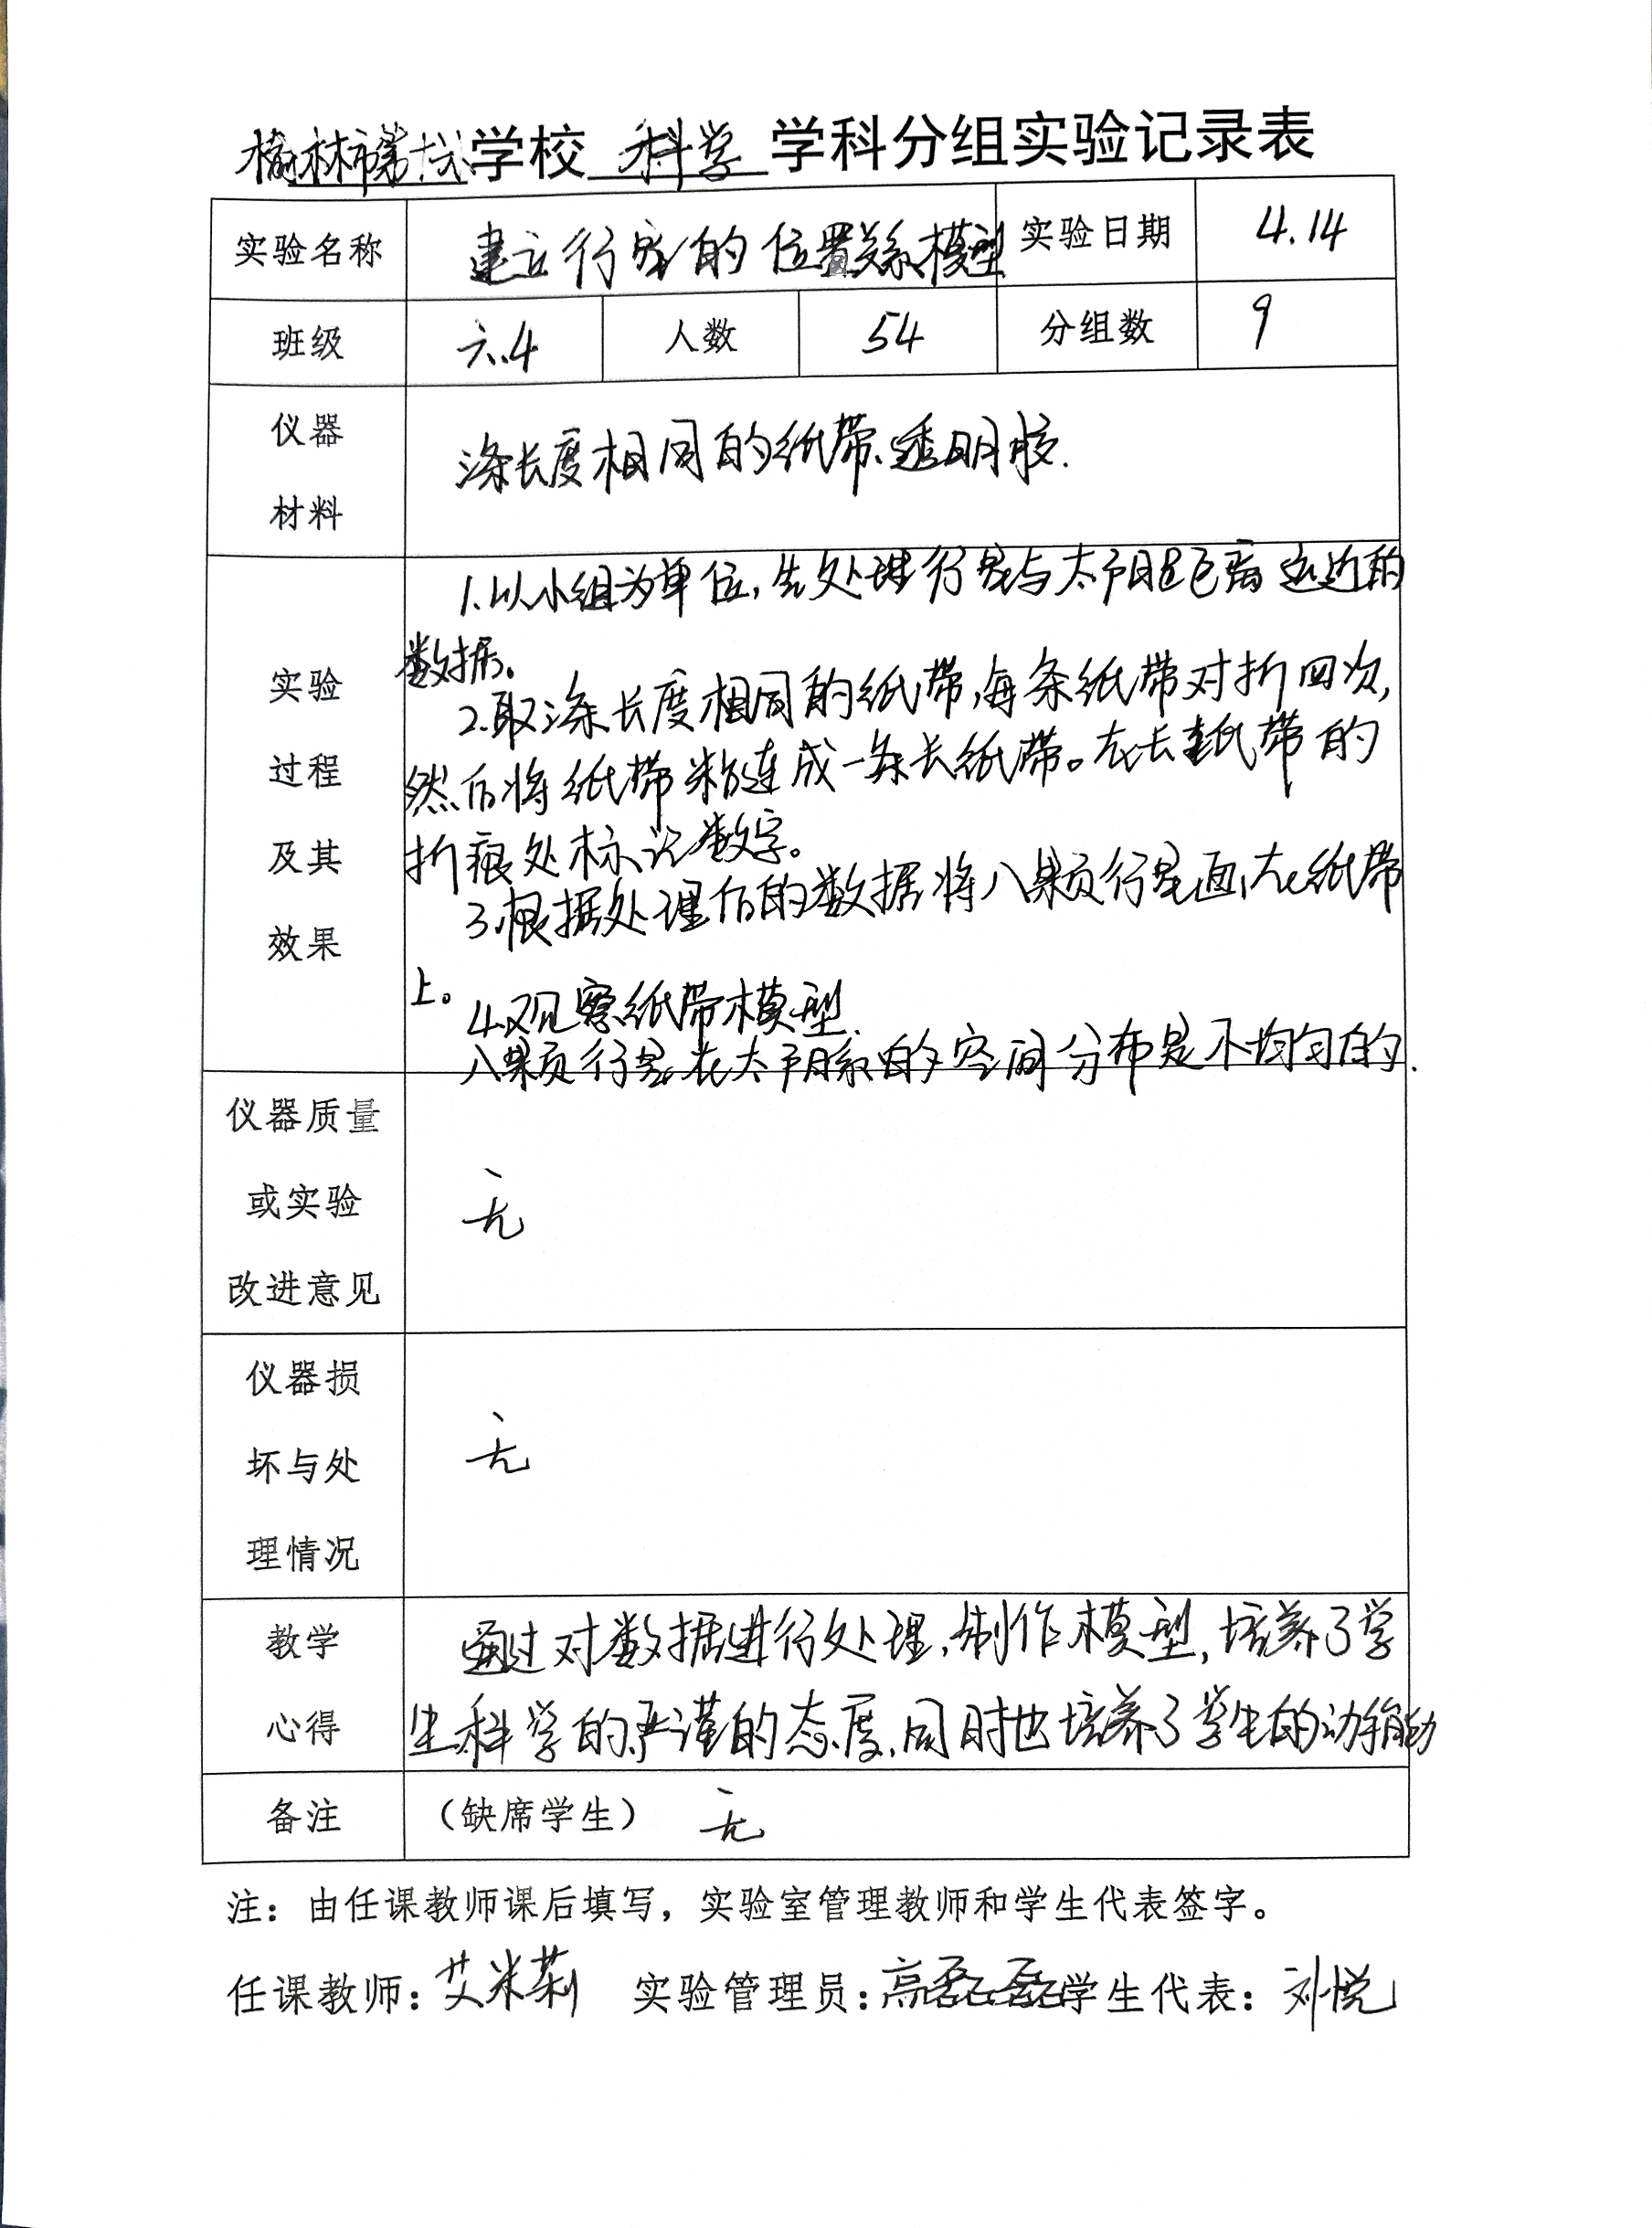 榆林市第十六学校 科学 学科分组实验记录表
实验名称 建立行星的位置关系模型 实验日期 4.14
班级 六.4 人数 54 分组数 9
仪器材料 三条长度相同的纸带、透明胶.
实验过程及其效果
1.以小组为单位,先处理行星与太阳距离远近的
数据。
2.取三条长度相同的纸带,每条纸带对折四次,
然后将纸带粘连成一条长纸带。在长纸带的
折痕处标记数字。
3.根据处理后的数据将八颗行星画在纸带
上。
4.观察纸带模型.
八颗行星在太阳系的空间分布是不均匀的.
仪器质量或实验改进意见 无
仪器损坏与处理情况 无
教学心得
通过对数据进行处理,制作模型,培养了学
生科学的严谨的态度,同时也培养了学生的动手能力
备注 （缺席学生） 无
注：由任课教师课后填写，实验室管理教师和学生代表签字。
任课教师：艾米莉 实验管理员：高磊磊 学生代表：刘悦